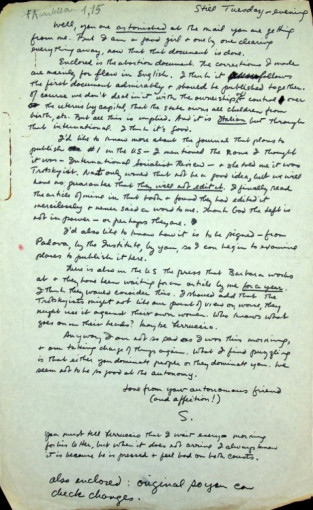 Still Tuesday - evening
Well, you are astonished at the mail you are getting
from me. But I am a good girl + only one clearing
everything away, now that that document is done.
Enclosed is the abortion document. The corrections I made
are merely for flaws in English. I think it follows
the first document admirably + should be published together.
Of course, we don't deal in it with the ownership + control over
the uterus by capital, that the state owns all children from
birth, etc. But all this is implied. And it is Italian but through
that international. I think it's good.
I'd like to know more about the journal that plans to
publish #1 in the US - I mentioned the name I thought
it was - International Socialist Review - + she told me it was
Trotskyist. Not only would that not be a good idea, but we will
have no guarantee that they will not edit it. I finally read
the article of mine in that book + found they had edited it
mercilessly + never said a word to me. Thank God the left is
not in power - or perhaps they are.
I'd also like to know how it is to be signed - from
Padova, by the Institute, by you, so I can begin to examine
places to publish it here.
There is also in the US the press that Barbara works
at + they have been waiting for an article by me for a year.
I think they would consider this. I should add that the
Trotskyists might not like our point of view or, worse, they
might use it against their own women. Who knows what
goes on in their heads? Maybe Ferruccio.
Anyway I am not so sad as I was this morning,
+ am taking charge of things again. What I find puzzling
is that either you dominate people or they dominate you. We
seem not to be so good at the autonomy.
Love from your autonomous friend
(and affection!)
S.
You must tell Ferruccio that I wait every morning
for his letter, but when it does not arrive I always know
it is because he is pressed + feel bad on both counts.
also enclosed: original so you can
check changes.